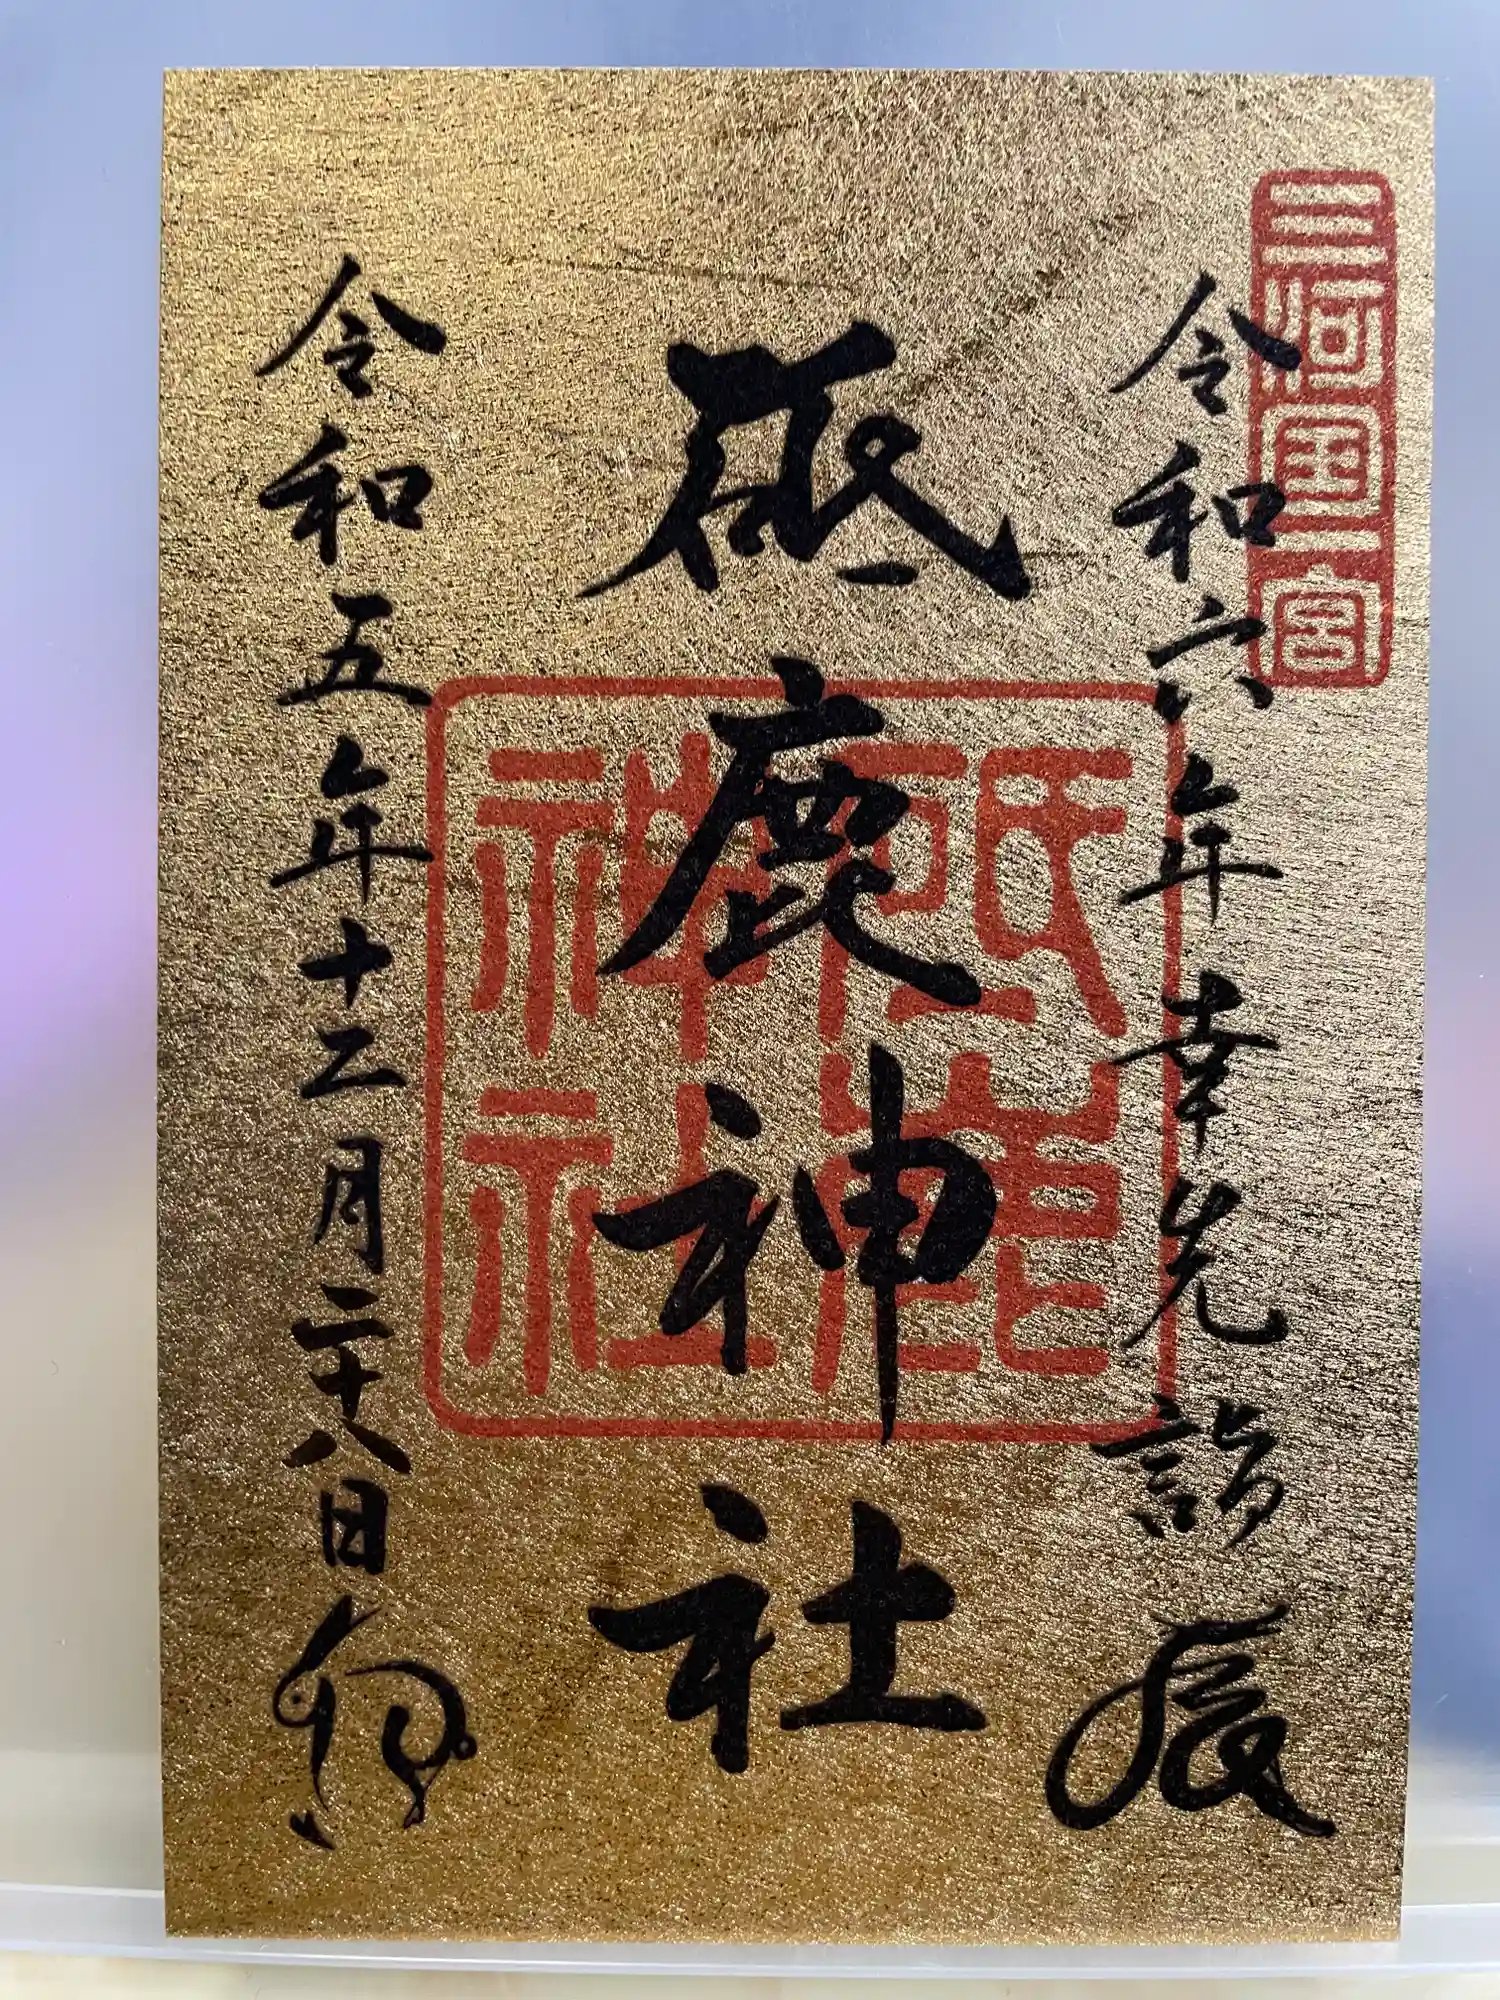 三河國一宮
令和六年幸先詣 辰
砥鹿神社
砥鹿神社
令和五年十二月二十八日 卯